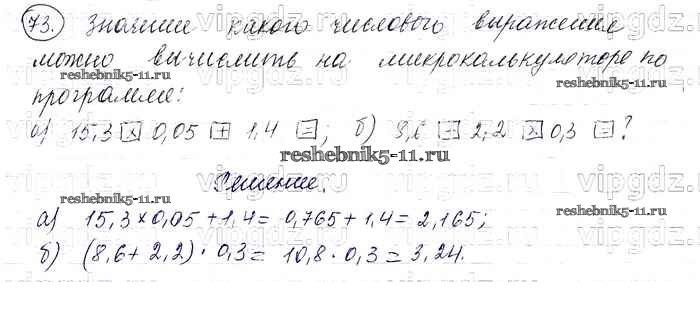 73. Значение какого числового выражения
можно вычислить на микрокалькуляторе по
программе:
а) 15,3 × 0,05 + 1,4 = ; б) 8,6 + 2,2 × 0,3 = ?
Решение.
а) 15,3×0,05+1,4= 0,765+1,4= 2,165;
б) (8,6+2,2)·0,3= 10,8·0,3=3,24.
reshebnik5-11.ru
reshebnik5-11.ru
reshebnik5-11.ru
reshebnik5-11.ru
vipgdz.ru